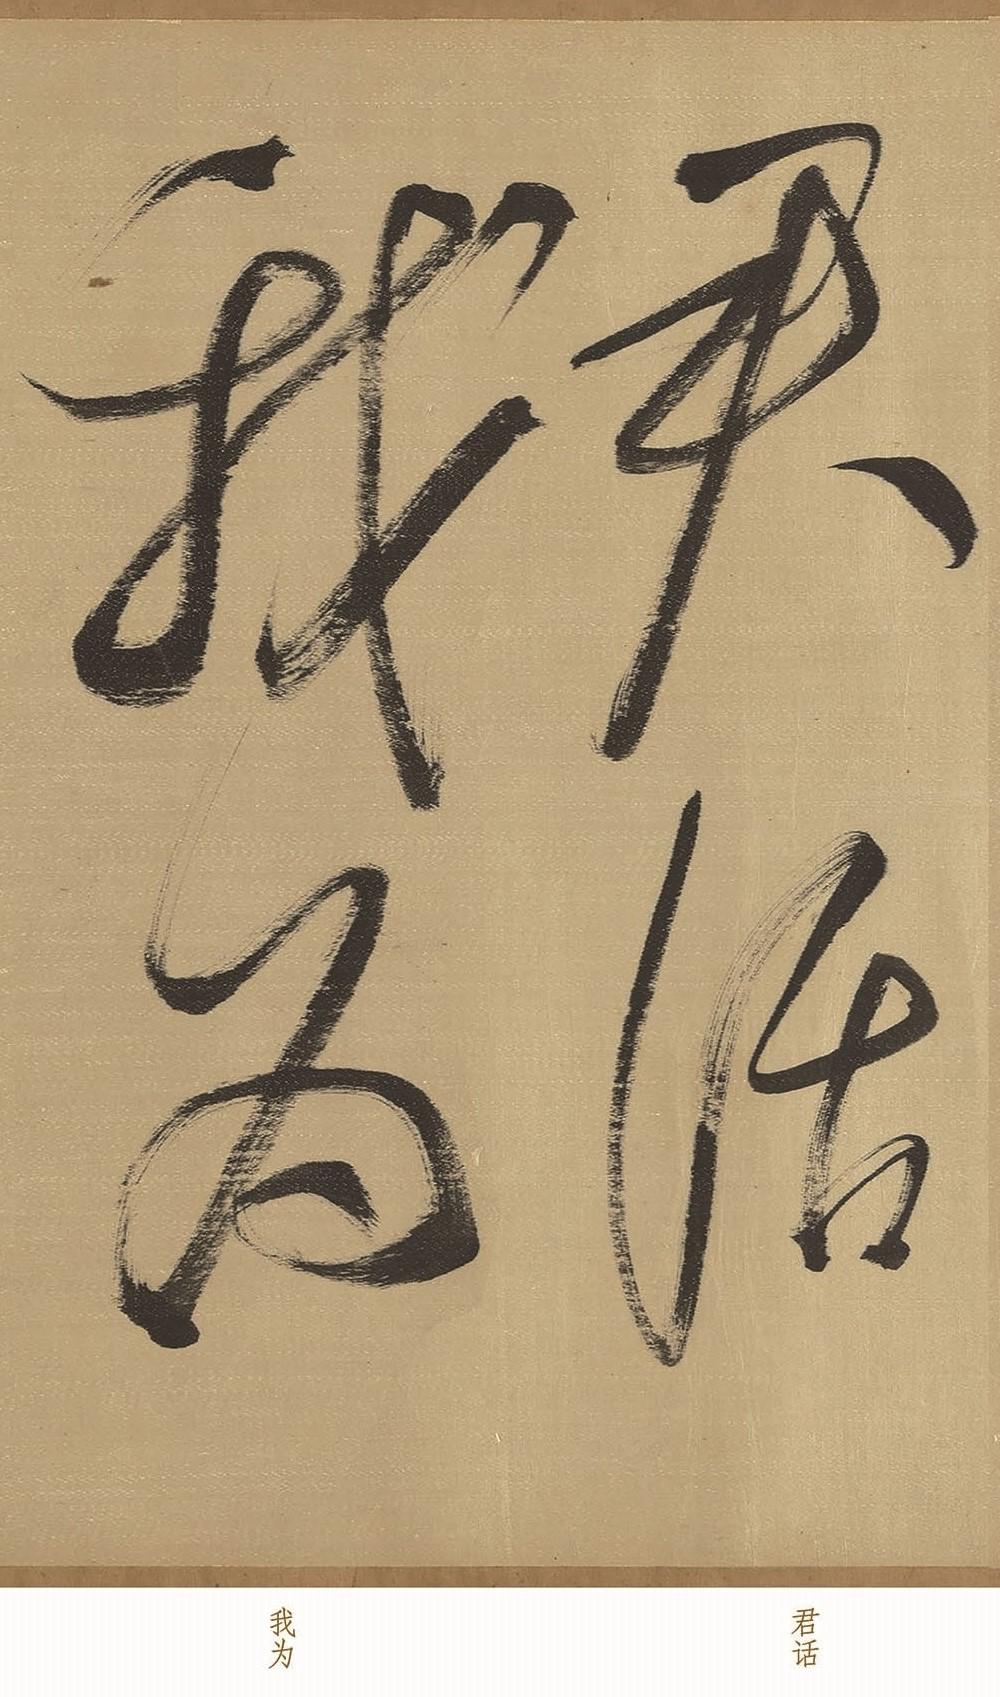 君話
我為
君话
我为